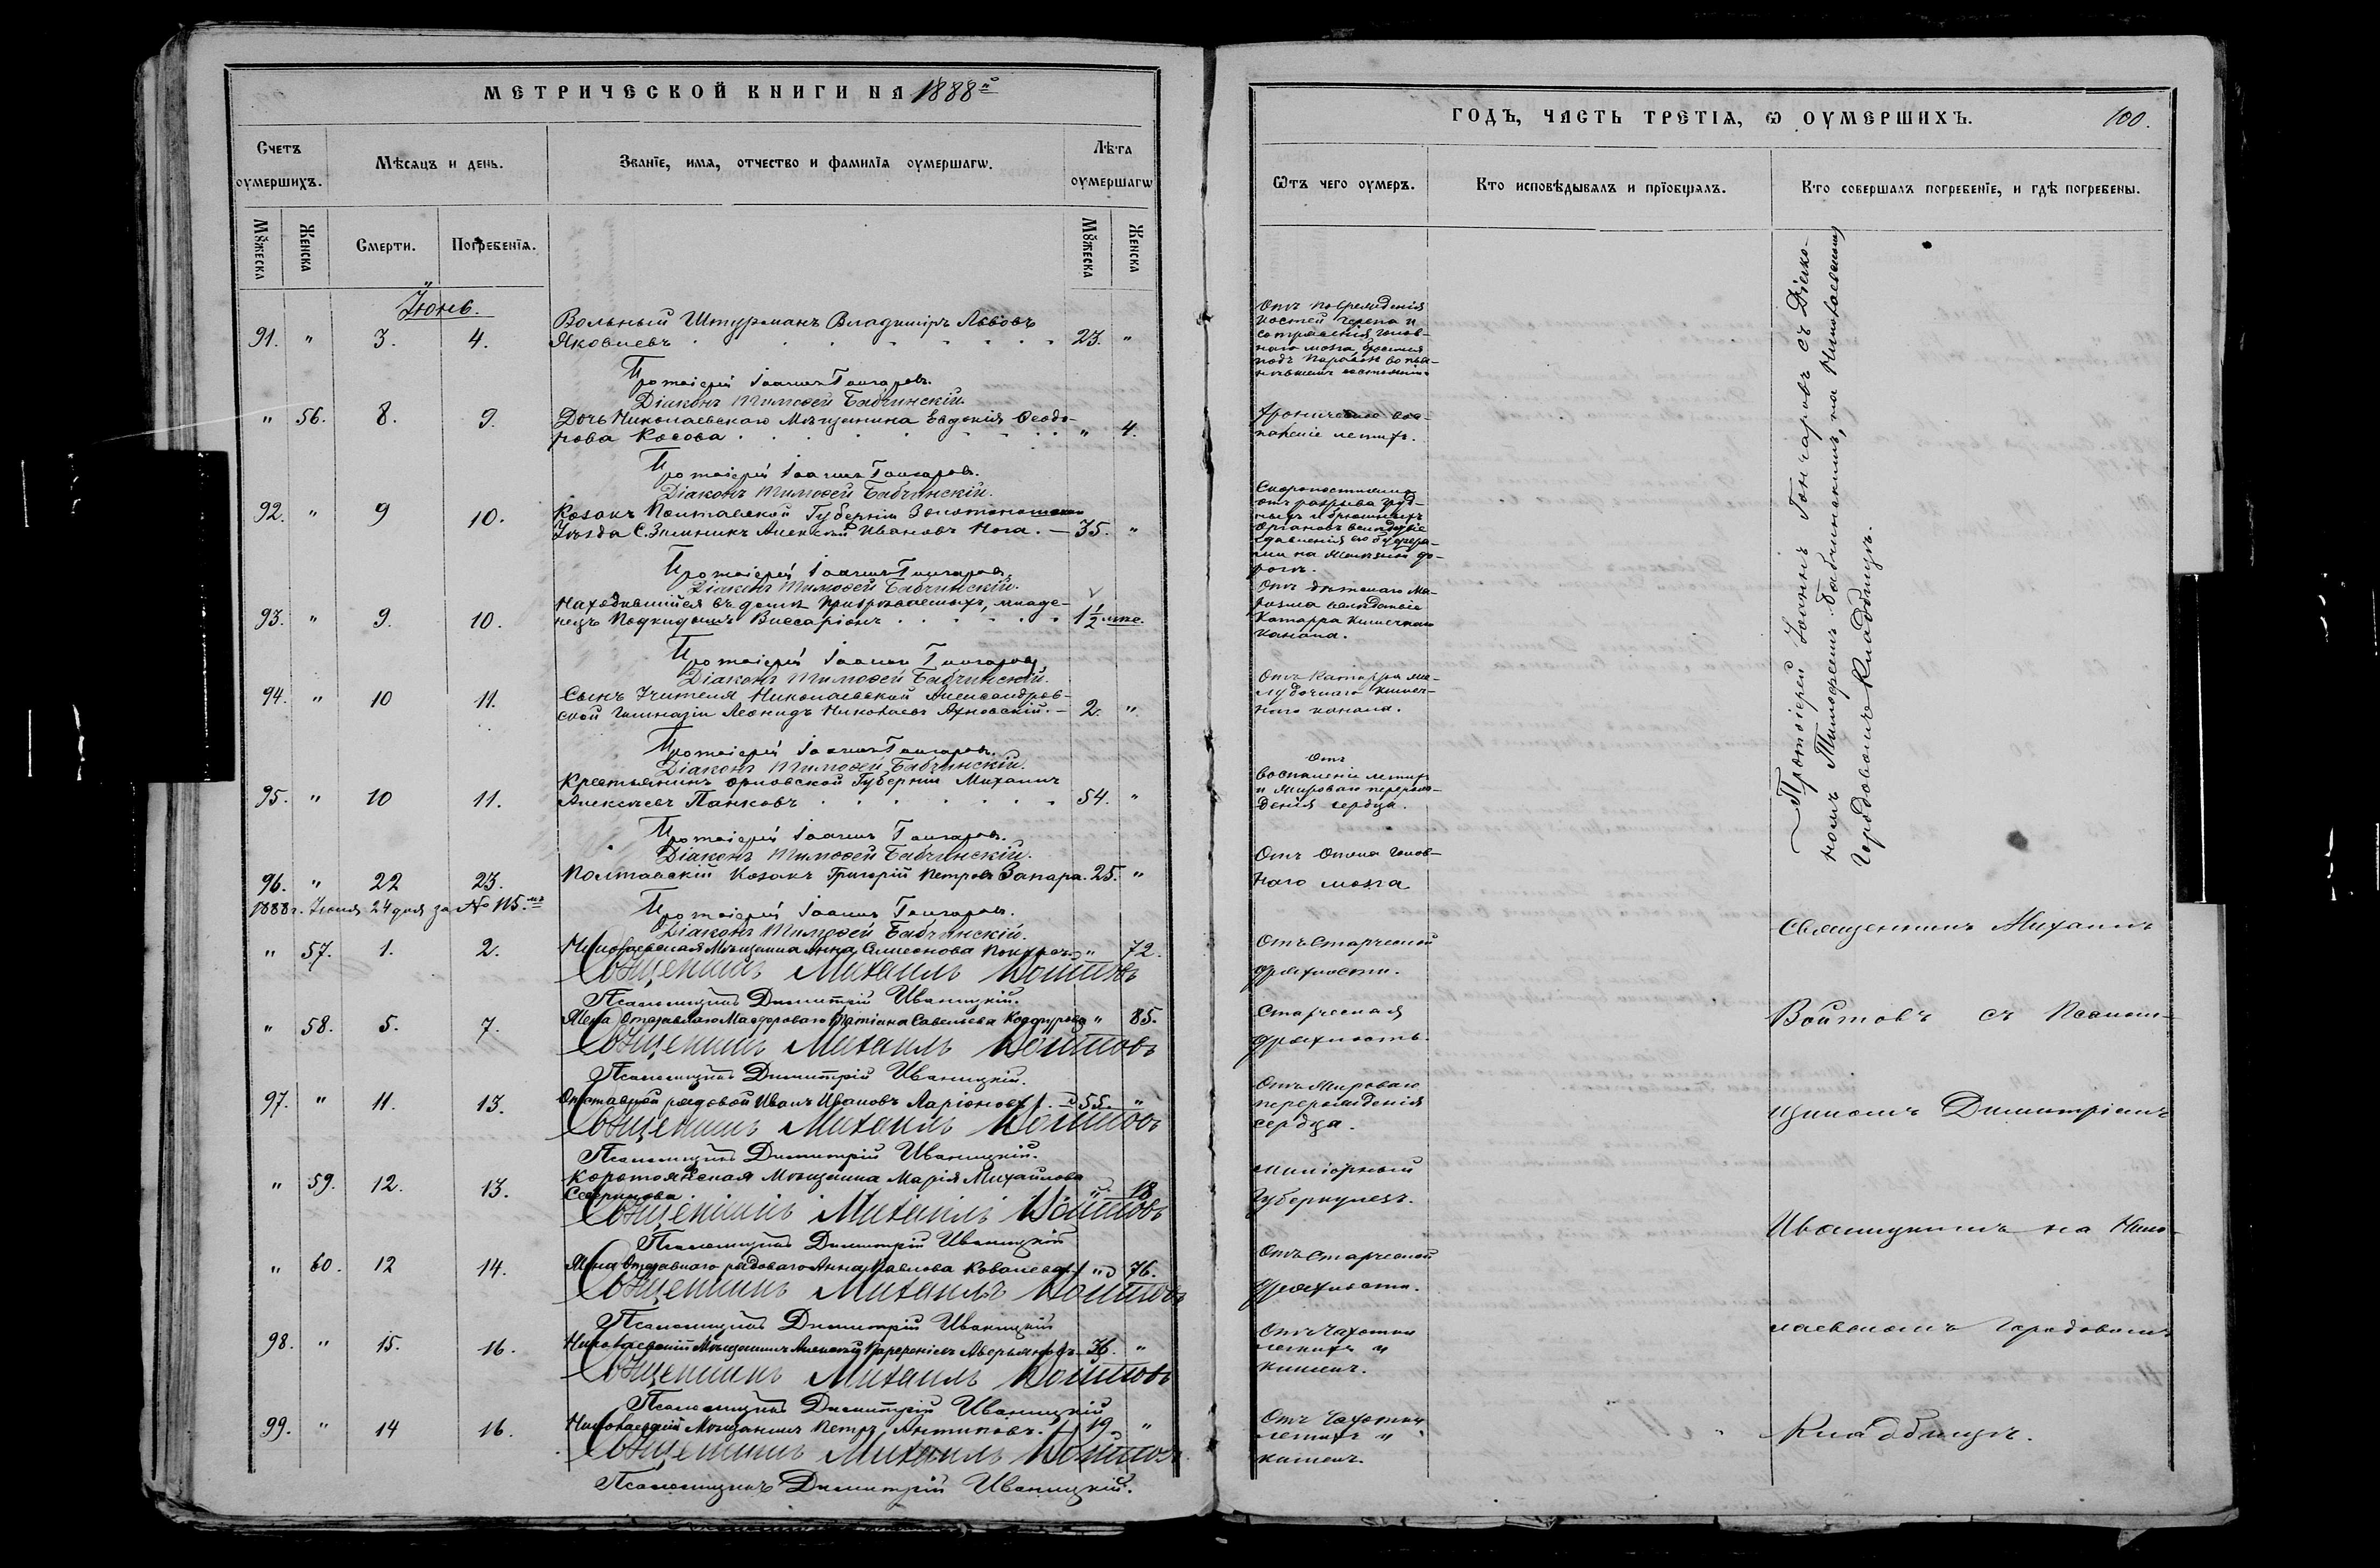 МЕТРИЧЕСКОЙ КНИГИ НА 1888й
Счетъ оумершихъ.
Мѣсяцъ и день.
Званіе, имя, отчество и фамилія оумершагѡ.
Лѣта оумершагѡ
Мꙋжеска
Женска
Смерти.
Погребенія.
Мꙋжеска
Женска
Іюнь.
91. " 3. 4. Вольный Штурманъ Владиміръ Львовъ
Яковлевъ 23. "
Протоіерей Іоаннъ Гончаровъ.
Діаконъ Тимоѳей Бабчинскій.
" 56. 8. 9. Дочь Николаевскаго Мѣщанина Евдокія Ѳеодо-
рова Косова " 4.
Протоіерей Іоаннъ Гончаровъ.
Діаконъ Тимоѳей Бабчинскій.
92. " 9 10. Козакъ Полтавской Губерніи Золотоношскаго
Уѣзда С. Зимникъ Алексѣй Ивановъ Нога. 35. "
Протоіерей Іоаннъ Гончаровъ.
Діаконъ Тимоѳей Бабчинскій.
93. " 9. 10. Находившійся въ домѣ призрѣваемыхъ, младе-
нецъ Подкидышъ Виссаріонъ 1 1/2 мѣс.
Протоіерей Іоаннъ Гончаровъ.
Діаконъ Тимоѳей Бабчинскій.
94. " 10 11. Сынъ Учителя Николаевской Александров-
ской Гимназіи Леонидъ Николаевъ 2. "
Протоіерей Іоаннъ Гончаровъ.
Діаконъ Тимоѳей Бабчинскій.
95. " 10 11. Крестьянинъ Орловской Губерніи Михаилъ
Алексѣевъ Панковъ 54. "
Протоіерей Іоаннъ Гончаровъ.
Діаконъ Тимоѳей Бабчинскій.
96. " 22 23. Полтавскій Козакъ Григорій Петровъ Запара. 25. "
1888 г. Іюня 24 дня за № 115.мъ
Протоіерей Іоаннъ Гончаровъ.
Діаконъ Тимоѳей Бабчинскій.
" 57. 1. 2. Николаевская Мѣщанка Анна Симеонова " 72.
Священникъ Михаилъ Войтовъ
Псаломщикъ Димитрій Иваницкій.
" 58. 5. 7. Жена Отставнаго Татіана Савельева " 85.
Священникъ Михаилъ Войтовъ
Псаломщикъ Димитрій Иваницкій.
97. " 11. 13. Отставной рядовой Иванъ Ивановъ Ларіоновъ 55. "
Священникъ Михаилъ Войтовъ
Псаломщикъ Димитрій Иваницкій.
" 59. 12. 13. Коротоякская Мѣщанка Марія Михайлова
" 18
Священникъ Михаилъ Войтовъ
Псаломщикъ Димитрій Иваницкій
" 60. 12 14. Жена Отставнаго рядоваго Анна Павлова Ковалева " 76.
Священникъ Михаилъ Войтовъ
Псаломщикъ Димитрій Иваницкій
98. " 15. 16. Николаевскій Мѣщанинъ Алексѣй Аверьяновъ 36. "
Священникъ Михаилъ Войтовъ
Псаломщикъ Димитрій Иваницкій
99. " 14 16. Николаевскій Мѣщанинъ Петръ Антиповъ. 19 "
Священникъ Михаилъ Войтовъ
Псаломщикъ Димитрій Иваницкій.
ГОДЪ, ЧАСТЬ ТРЕТІЯ, Ѡ ОУМЕРШИХЪ.
100.
Ѿтъ чего оумеръ.
Кто исповѣдывалъ и пріобщалъ.
Кто совершалъ погребеніе, и гдѣ погребены.
Отъ поврежденія
костей черепа и
сотрясенія голов-
наго мозга
Хроническое вос-
паленіе легкихъ.
Скоропостижно
отъ разрыва груд-
ныхъ и брюшныхъ
органовъ вслѣдствіе
сдавленія его буфера-
ми на желѣзной до-
рогѣ.
Отъ дѣтскаго ма-
разма вслѣдствіе
Катарра кишечнаго
канала.
Отъ Катарра же-
лудочнаго кишеч-
наго канала.
Отъ
воспаленія легкихъ
и жироваго перерож-
денія сердца.
Отъ Отека голов-
наго мозга
Отъ старческой
дряхлости.
Старческая
дряхлость.
Отъ жироваго
перерожденія
сердца.
Миліарный
Туберкулезъ.
Отъ старческой
дряхлости.
Отъ Чахотки
легкихъ и
кишекъ.
Отъ Чахотки
легкихъ и
кишекъ.
Протоіерей Іоаннъ Гончаровъ съ Діако-
номъ Тимоѳеемъ Бабчинскимъ, на Николаевскомъ
Городовомъ Кладбищѣ.
Священникъ Михаилъ
Войтовъ съ Псалом-
щикомъ Димитріемъ
Иваницкимъ на Нико-
лаевскомъ Городовомъ
Кладбищѣ.